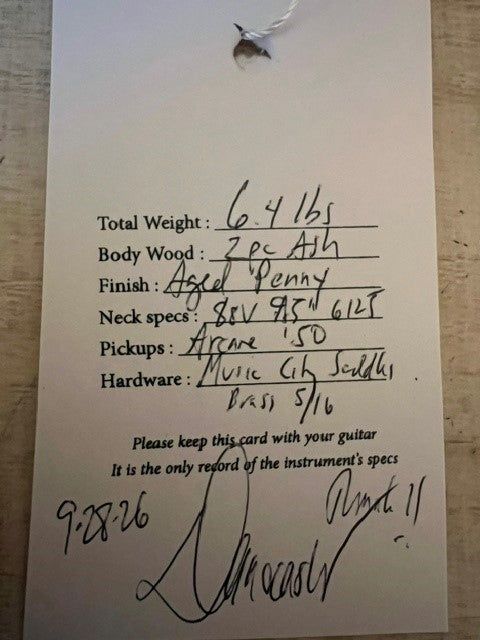 Total Weight : 6.4 lbs
Body Wood : 2 pc Ash
Finish : Aged Penny
Neck specs : 88V 9.5" 6125
Pickups : Arcane '50
Hardware : Music City Saddles
Brass 5/16
Please keep this card with your guitar
It is the only record of the instrument's specs
9-28-26
Danocaster